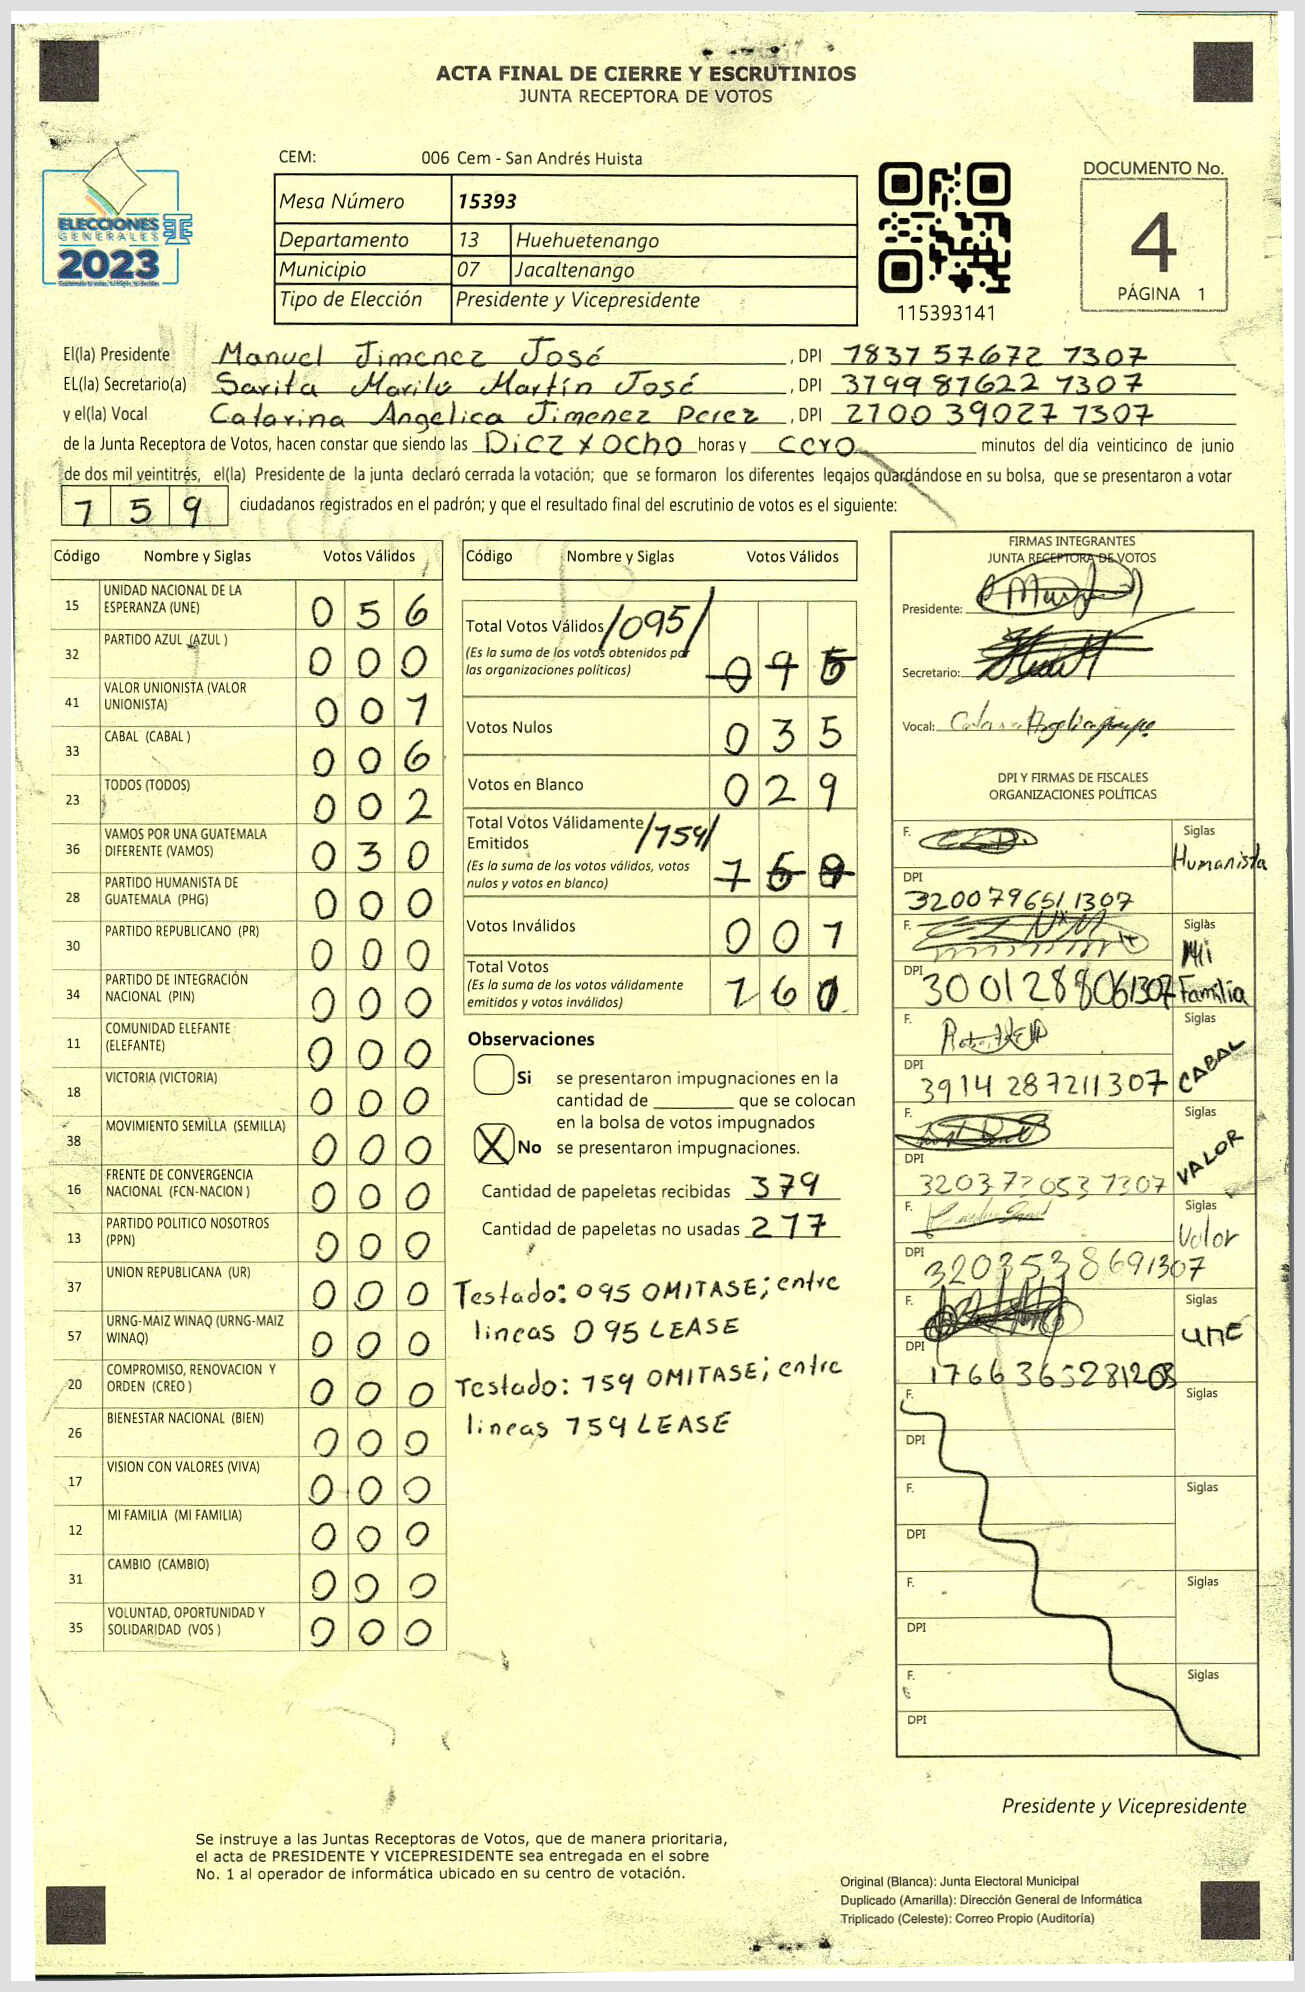 ACTA FINAL DE CIERRE Y ESCRUTINIOS
JUNTA RECEPTORA DE VOTOS
CEM: 006 Cem - San Andrés Huista
ELECCIONES
GENERALES
2023
Mesa Número 15393
Departamento 13 Huehuetenango
Municipio 07 Jacaltenango
Tipo de Elección Presidente y Vicepresidente
115393141
DOCUMENTO No.
4
PÁGINA 1
El(la) Presidente Manuel Jimenez José , DPI 1837 57672 1307
EL(la) Secretario(a) Sarita Marilú Martín José , DPI 3799 87622 1307
y el(la) Vocal Catarina Angelica Jimenez Perez , DPI 2100 39027 1307
de la Junta Receptora de Votos, hacen constar que siendo las Diez y ocho horas y cero minutos del día veinticinco de junio
de dos mil veintitrés, el(la) Presidente de la junta declaró cerrada la votación; que se formaron los diferentes legajos guardándose en su bolsa, que se presentaron a votar
159 ciudadanos registrados en el padrón; y que el resultado final del escrutinio de votos es el siguiente:
Código Nombre y Siglas Votos Válidos
15 UNIDAD NACIONAL DE LA
ESPERANZA (UNE) 056
32 PARTIDO AZUL (AZUL ) 000
41 VALOR UNIONISTA (VALOR
UNIONISTA) 001
33 CABAL (CABAL ) 006
23 TODOS (TODOS) 002
36 VAMOS POR UNA GUATEMALA
DIFERENTE (VAMOS) 030
28 PARTIDO HUMANISTA DE
GUATEMALA (PHG) 000
30 PARTIDO REPUBLICANO (PR) 000
34 PARTIDO DE INTEGRACIÓN
NACIONAL (PIN) 000
11 COMUNIDAD ELEFANTE
(ELEFANTE) 000
18 VICTORIA (VICTORIA) 000
38 MOVIMIENTO SEMILLA (SEMILLA) 000
16 FRENTE DE CONVERGENCIA
NACIONAL (FCN-NACION ) 000
13 PARTIDO POLITICO NOSOTROS
(PPN) 000
37 UNION REPUBLICANA (UR) 000
57 URNG-MAIZ WINAQ (URNG-MAIZ
WINAQ) 000
20 COMPROMISO, RENOVACION Y
ORDEN (CREO ) 000
26 BIENESTAR NACIONAL (BIEN) 000
17 VISION CON VALORES (VIVA) 000
12 MI FAMILIA (MI FAMILIA) 000
31 CAMBIO (CAMBIO) 000
35 VOLUNTAD, OPORTUNIDAD Y
SOLIDARIDAD (VOS ) 000
Código Nombre y Siglas Votos Válidos
Total Votos Válidos /095/
(Es la suma de los votos obtenidos por
las organizaciones políticas) 095
Votos Nulos 035
Votos en Blanco 029
Total Votos Válidamente
Emitidos /159/
(Es la suma de los votos válidos, votos
nulos y votos en blanco) 159
Votos Inválidos 001
Total Votos
(Es la suma de los votos válidamente
emitidos y votos inválidos) 160
Observaciones
Si se presentaron impugnaciones en la
cantidad de ________ que se colocan
en la bolsa de votos impugnados
X No se presentaron impugnaciones.
Cantidad de papeletas recibidas 379
Cantidad de papeletas no usadas 217
Testado: 095 OMITASE; entre
lineas 095 LEASE
Testado: 159 OMITASE; entre
lineas 159 LEASE
FIRMAS INTEGRANTES
JUNTA RECEPTORA DE VOTOS
Presidente:
Secretario:
Vocal:
DPI Y FIRMAS DE FISCALES
ORGANIZACIONES POLÍTICAS
F. Siglas
Humanista
DPI 3200796511307
F. Siglas
Mi
Familia
DPI 3001288061307
F. Siglas
CABAL
DPI 3914 287211307
F. Siglas
VALOR
DPI 3203 72053 1307
F. Siglas
Valor
DPI 3203538691307
F. Siglas
UNE
DPI 1766 365281203
F. Siglas
DPI
F. Siglas
DPI
F. Siglas
DPI
F. Siglas
DPI
Presidente y Vicepresidente
Se instruye a las Juntas Receptoras de Votos, que de manera prioritaria,
el acta de PRESIDENTE Y VICEPRESIDENTE sea entregada en el sobre
No. 1 al operador de informática ubicado en su centro de votación.
Original (Blanca): Junta Electoral Municipal
Duplicado (Amarilla): Dirección General de Informática
Triplicado (Celeste): Correo Propio (Auditoría)